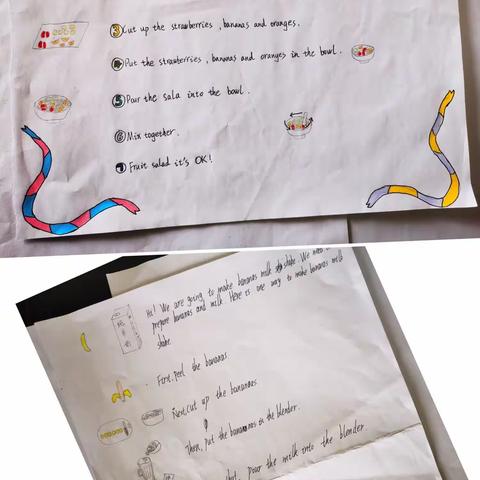 ③ Cut up the strawberries, bananas and oranges.
④ Put the strawberries, bananas and oranges in the bowl.
⑤ Pour the sala into the bowl.
⑥ Mix together.
⑦ Fruit salad it's OK!
Hi! We are going to make bananas milk shake. We need
prepare bananas and milk. Here is one way to make bananas milk
shake.
First, peel the bananas.
Next, cut up the bananas
Then, put the bananas in the blender.
pour the milk into the blender.